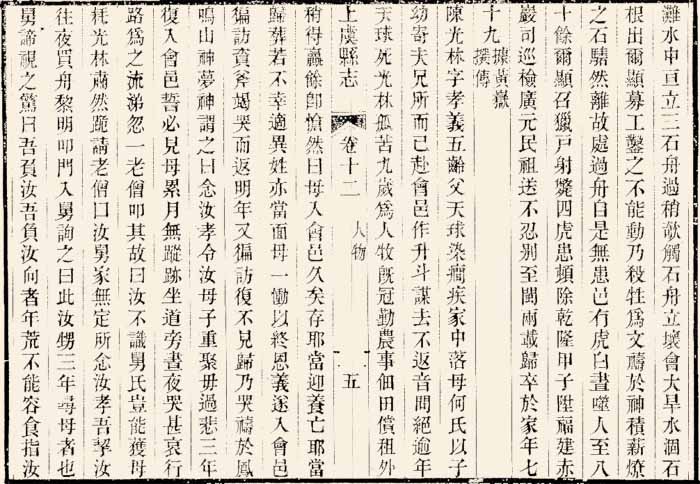 灘水中亘立三石舟過稍欹觸石舟立壞會大旱水涸石
根出爾顯募工鑿之不能動乃殺牲為文禱於神積薪燎
之石騞然離故處過舟自是無患邑有虎白晝噬人至八
十餘爾顯召獵戶射斃四虎患頓除乾隆甲子陞福建赤
巖司巡檢廣元民祖送不忍別至閩兩載歸卒於家年七
十九據黃嶽撰傳
陳光林字孝義五齡父天球染癎疾家中落母何氏以子
幼寄夫兄所而已赴會邑作升斗謀去不返音問絕逾年
天球死光林孤苦九歲為人牧旣冠勤農事佃田償租外
上虞縣志 卷十二 人物 五
稍得贏餘卽愴然曰母入會邑久矣存耶當迎養亡耶當
歸葬若不幸適異姓亦當面母一慟以終恩義遂入會邑
徧訪資斧竭哭而返明年又徧訪復不見歸乃哭禱於鳳
鳴山神夢神謂之曰念汝孝令汝母子重聚毋過悲三年
復入會邑誓必見母累月無蹤跡坐道旁晝夜哭甚哀行
路為之流涕忽一老僧叩其故曰汝不識舅氏豈能獲母
耗光林肅然跪請老僧曰汝舅家無定所念汝孝吾挈汝
往夜買舟黎明叩門入舅詢之曰此汝甥三年尋母者也
舅諦視之驚曰吾負汝吾負汝向者年荒不能容食指汝